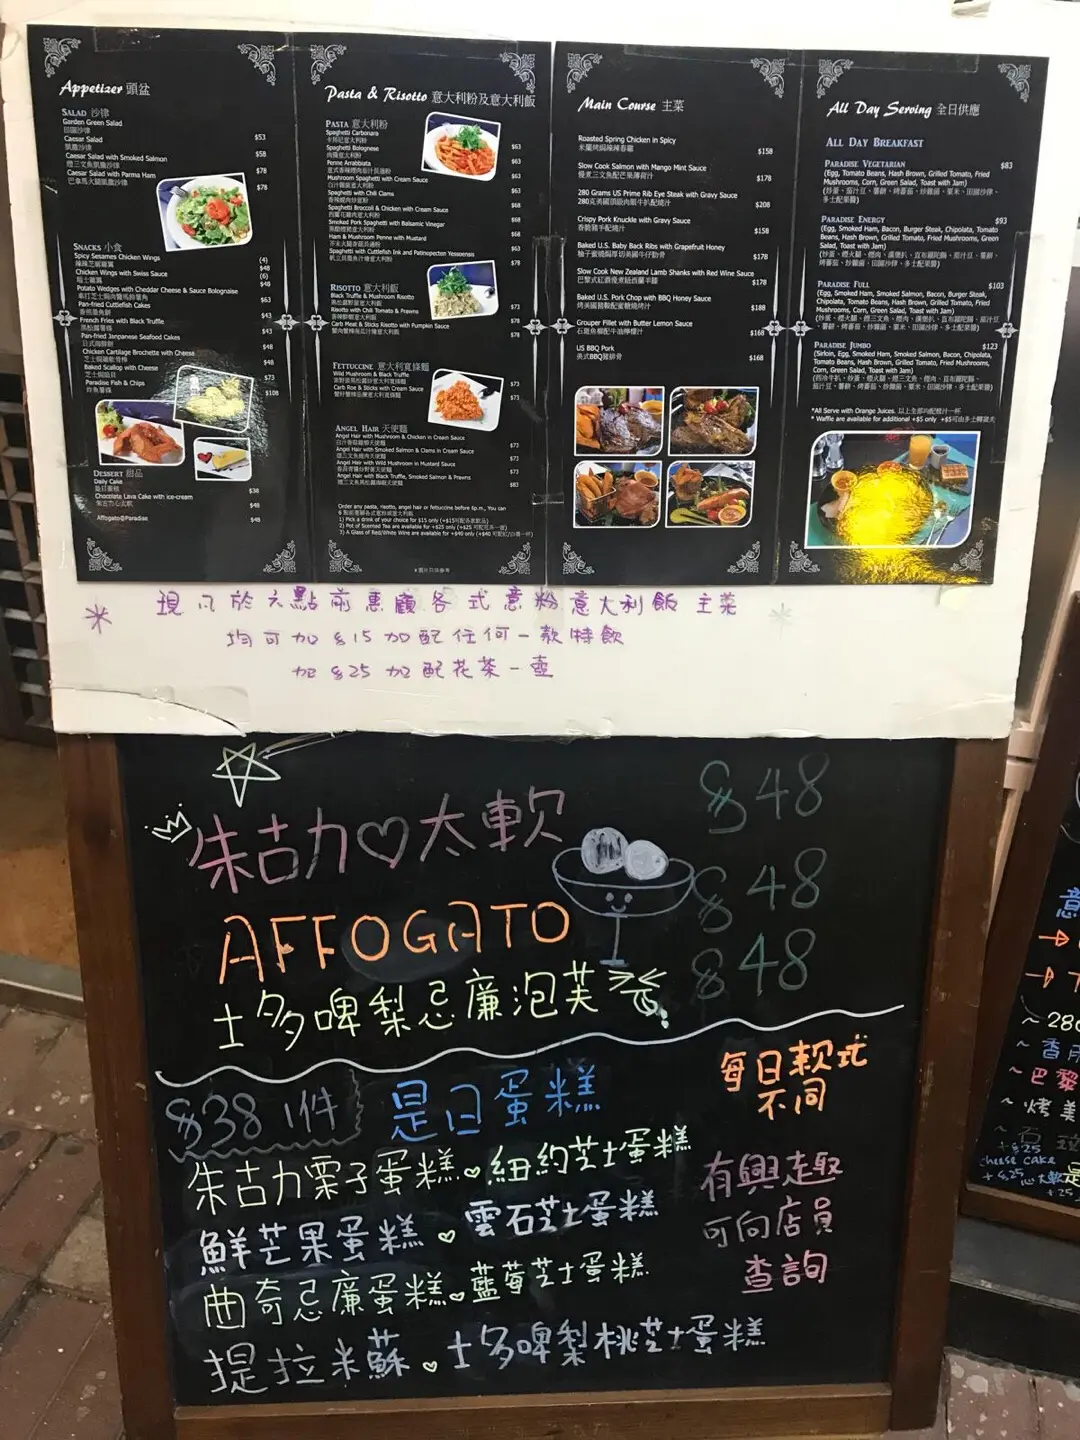 Appetizer 頭盆
SALAD 沙律
Garden Green Salad
田園沙律
$53
Caesar Salad
凱撒沙律
$58
Caesar Salad with Smoked Salmon
煙三文魚凱撒沙律
$78
Caesar Salad with Parma Ham
巴拿馬火腿凱撒沙律
$78
SNACKS 小食
Spicy Sesames Chicken Wings
(4) $48
Chicken Wings with Swiss Sauce
瑞士雞翼
(6) $48
Potato Wedges with Cheddar Cheese & Sauce Bolognaise
$63
Pan-fried Cuttlefish Cakes
香煎墨魚餅
$43
French Fries with Black Truffle
黑松露薯條
$43
Pan-fried Janpanese Seafood Cakes
日式海鮮餅
$48
Chicken Cartilage Brochette with Cheese
$48
Baked Scallop with Cheese
$73
Paradise Fish & Chips
炸魚薯條
$108
DESSERT 甜品
Daily Cake
是日蛋糕
$38
Chocolate Lava Cake with ice-cream
朱古力心太軟
$48
Affogato@Paradise
$48
Pasta & Risotto 意大利粉及意大利飯
PASTA 意大利粉
Spaghetti Carbonara
卡邦尼意大利粉
$63
Spaghetti Bolognese
肉醬意大利粉
$63
Penne Arrabbiata
$63
Mushroom Spaghetti with Cream Sauce
白汁雜菌意大利粉
$63
Spaghetti with Chili Clams
香辣蜆肉炒意粉
$68
Spaghetti Broccoli & Chicken with Cream Sauce
西蘭花雞肉意大利粉
$68
Smoked Pork Spaghetti with Balsamic Vinegar
$68
Ham & Mushroom Penne with Mustard
$68
Spaghetti with Cuttlefish Ink and Patinopecten Yessoensis
帆立貝墨魚汁燴意大利粉
$78
RISOTTO 意大利飯
Black Truffle & Mushroom Risotto
黑松露野菌意大利飯
$78
Risotto with Chili Tomato & Prawns
香辣鮮蝦意大利飯
$78
Carb Meat & Sticks Risotto with Pumpkin Sauce
$78
FETTUCCINE 意大利寬條麵
Wild Mushroom & Black Truffle
$73
Carb Roe & Sticks with Cream Sauce
$73
ANGEL HAIR 天使麵
Angel Hair with Mushroom & Chicken in Cream Sauce
$73
Angel Hair with Smoked Salmon & Clams in Cream Sauce
$73
Angel Hair with Wild Mushroom in Mustard Sauce
$73
Angel Hair with Black Truffle, Smoked Salmon & Prawns
$83
Order any pasta, risotto, angel hair or fettuccine before 6p.m., You can
1) Pick a drink of your choice for $15 only (+$15可配各款飲品)
2) Pot of Scented Tea are available for +$25 only (+$25 可配花茶一壺)
3) A Glass of Red/White Wine are available for +$40 only (+$40 可配紅/白酒一杯)
Main Course 主菜
Roasted Spring Chicken in Spicy
米蘭烤焗辣辣春雞
$158
Slow Cook Salmon with Mango Mint Sauce
慢煮三文魚配芒果薄荷汁
$178
280 Grams US Prime Rib Eye Steak with Gravy Sauce
280克美國頂級肉眼牛扒配燒汁
$208
Crispy Pork Knuckle with Gravy Sauce
香脆豬手配燒汁
$158
Baked U.S. Baby Back Ribs with Grapefruit Honey
$178
Slow Cook New Zealand Lamb Shanks with Red Wine Sauce
巴黎式紅酒慢煮紐西蘭羊膝
$178
Baked U.S. Pork Chop with BBQ Honey Sauce
$188
Grouper Fillet with Butter Lemon Sauce
石斑魚柳配牛油檸檬汁
$168
US BBQ Pork
美式BBQ豬排骨
$168
All Day Serving 全日供應
ALL DAY BREAKFAST
PARADISE VEGETARIAN
$83
(Egg, Tomato Beans, Hash Brown, Grilled Tomato, Fried
Mushrooms, Corn, Green Salad, Toast with Jam)
PARADISE ENERGY
$93
(Egg, Smoked Ham, Bacon, Burger Steak, Chipolata, Tomato
Beans, Hash Brown, Grilled Tomato, Fried Mushrooms, Green
Salad, Toast with Jam)
PARADISE FULL
$103
(Egg, Smoked Ham, Smoked Salmon, Bacon, Burger Steak,
Chipolata, Tomato Beans, Hash Brown, Grilled Tomato, Fried
Mushrooms, Corn, Green Salad, Toast with Jam)
PARADISE JUMBO
$123
(Sirloin, Egg, Smoked Ham, Smoked Salmon, Bacon, Chipolata,
Tomato Beans, Hash Brown, Grilled Tomato, Fried Mushrooms,
Corn, Green Salad, Toast with Jam)
*All Serve with Orange Juices. 以上全部均配橙汁一杯
* Waffle are available for additional +$5 only +$5可由多士轉窩夫
現凡於六點前惠顧各式意粉意大利飯 主菜
均可加$15加配任何一款特飲
加$25加配花茶一壺
朱古力♡太軟 $48
AFFOGATO $48
士多啤梨忌廉泡芙 $48
$38 1件 是日蛋糕
每日款式
不同
朱古力栗子蛋糕 紐約芝士蛋糕
鮮芒果蛋糕 雲石芝士蛋糕
曲奇忌廉蛋糕 藍莓芝士蛋糕
提拉米蘇 士多啤梨桃芝士蛋糕
有興趣
可向店員
查詢
意
~ 280
~ 香
~ 巴黎
~ 烤美
+$25
cheese cake
+$25 心太軟
+25